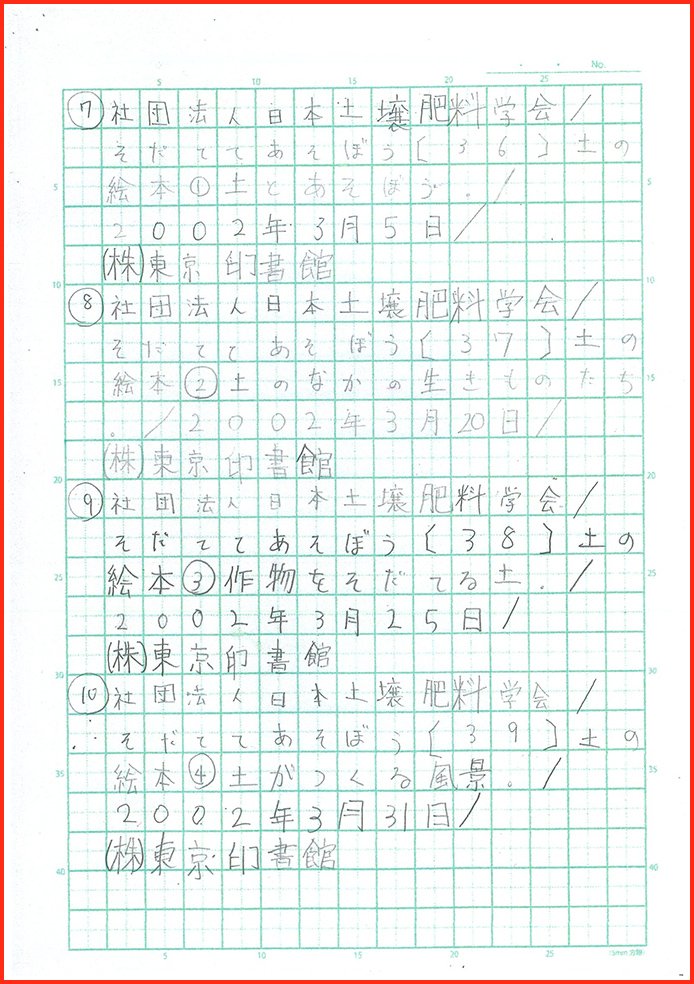 No.
5 10 15 20 25
⑦ 社団法人日本土壌肥料学会/
そだててあそぼう[36]土の
5 絵本①土とあそぼう。/ 5
2002年3月5日/
(株)東京印書館
10 ⑧ 社団法人日本土壌肥料学会/ 10
そだててあそぼう[37]土の
15 絵本②土のなかの生きものたち 15
。/2002年3月20日/
(株)東京印書館
20 ⑨ 社団法人日本土壌肥料学会/ 20
そだててあそぼう[38]土の
25 絵本③作物をそだてる土。/ 25
2002年3月25日/
(株)東京印書館
30 ⑩ 社団法人日本土壌肥料学会/ 30
そだててあそぼう[39]土の
35 絵本④土がつくる風景。/ 35
2002年3月31日/
(株)東京印書館
40 40
5 10 15 20 25 (5mm方眼)